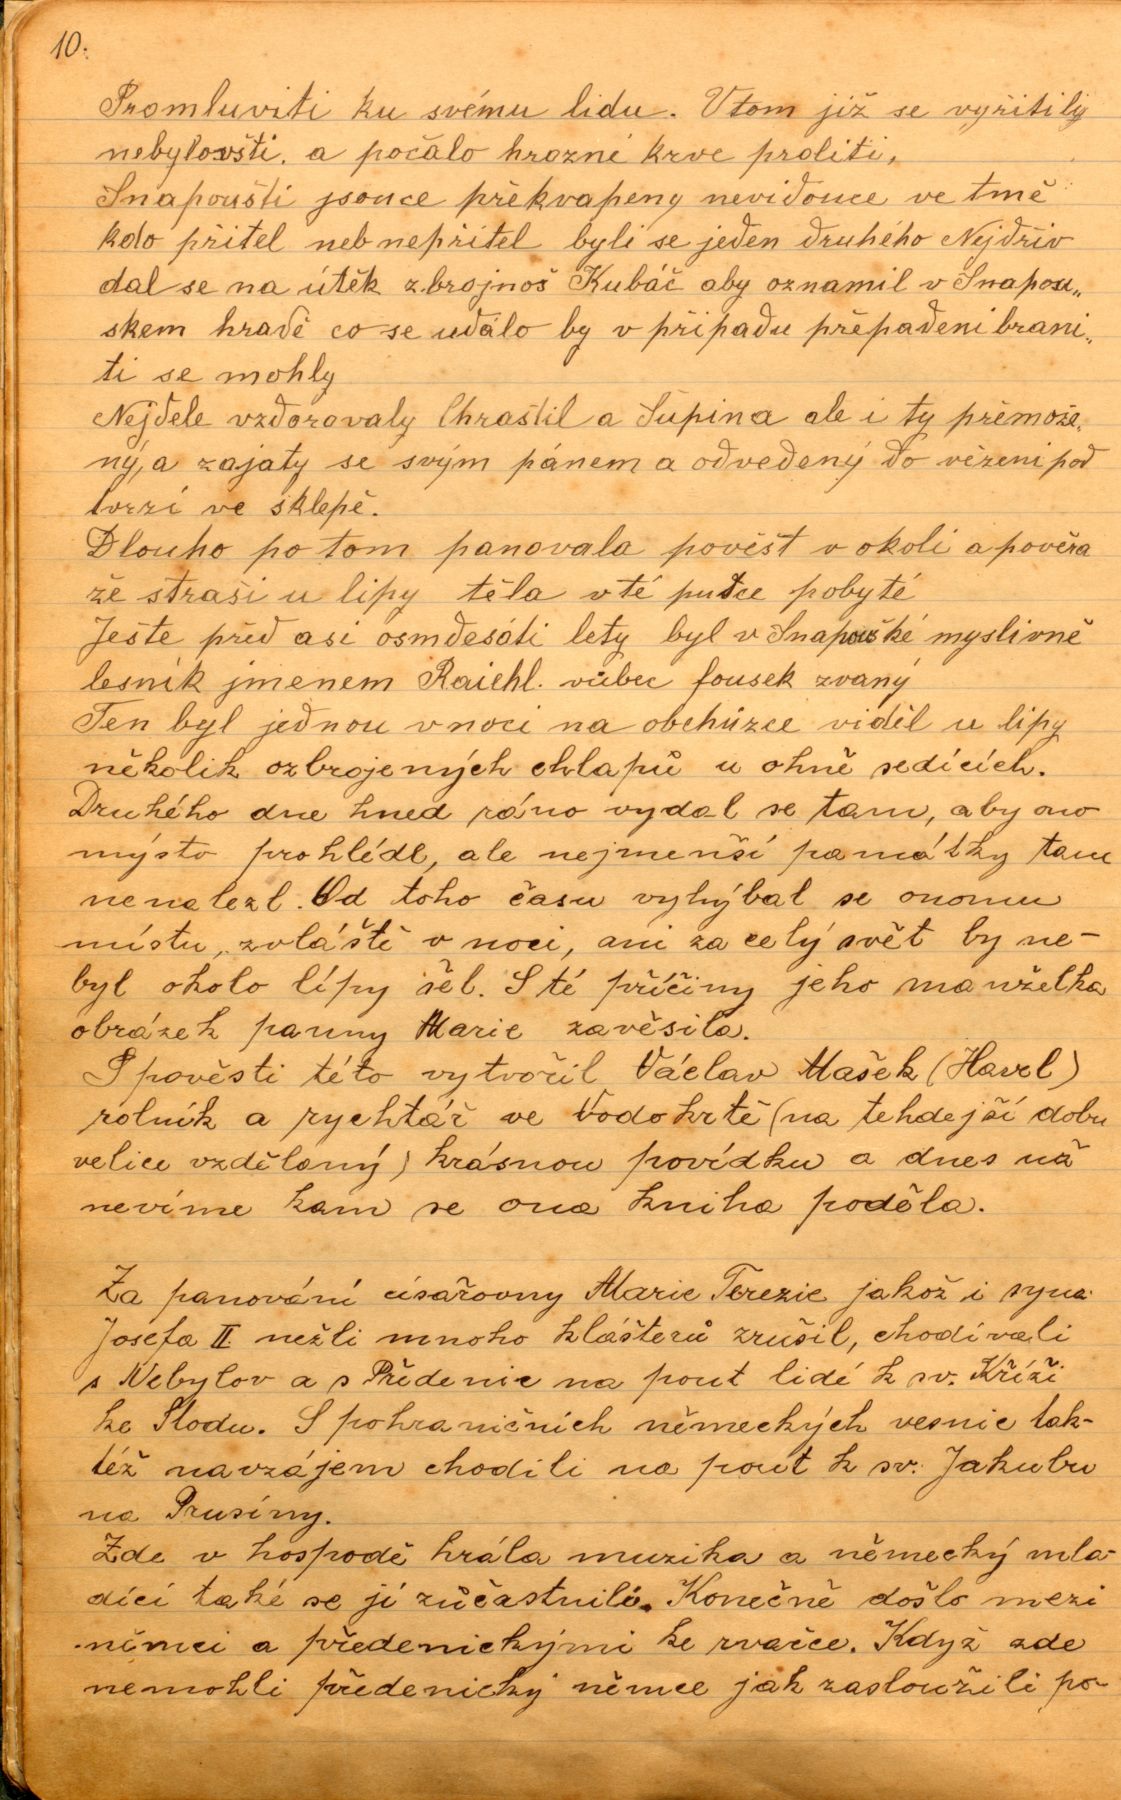 10.
Promluviti ku svému lidu. Vtom již se vyřitily
nebylovšti. a počálo hrozné krve proliti,
Snapoušti jsouce překvapeny nevidouce ve tmě
kdo přitel neb nepřitel byli se jeden druhého Nejdřiv
dal se na útěk zbrojnoš Kubáč aby oznamil v Snapou„
skem hradě co se událo by v připadu přepadeni brani„
ti se mohly
Nejdele vzdorovaly Chraštil a Šupina ale i ty přemože„
ný, a zajaty se svým pánem a odvedený do vězeni pod
tvrzí ve sklepě.
Dlouho po tom panovala pověst v okoli a pověra
že straši u lipy těla v té putce pobyté
Ješte před asi osmdesáti lety byl v Snapouské myslivně
lesník jmenem Raichl. vůbec fousek zvaný
Ten byl jednou v noci na obchůzce viděl u lipy
několik ozbrojených chlapů u ohně sedících.
Druhého dne hned ráno vydal se tam, aby ono
mýsto prohlédl, ale nejmenší památky tam
nenalezl. Od toho času vyhýbal se onomu
místu, zvláště v noci, ani za celý svět by ne-
byl okolo lípy šel. S té příčiny jeho manželka
obrázek panny Marie zavěsila.
S pověsti této vytvořil Václav Mašek (Havel)
rolník a rychtář ve Vodokrtě (na tehdejší dobu
velice vzdělaný) krásnou povídku a dnes už
nevíme kam se ona kniha poděla.
Za panování císařovny Marie Terezie jakož i syna
Josefa II nežli mnoho klášterů zrušil, chodívali
s Nebylov a s Předenic na pout lidé k sv. Kříži
ke Stodu. S pohraničních německých vesnic tak-
též navzájem chodili na pout k sv. Jakubu
na Prusíny.
Zde v hospodě hrála muzika a německý mla-
díci také se jí zůčastnili. Konečně došlo mezi
němci a předenickými ke rvačce. Když zde
nemohli předenický němce jak zasloužili po-